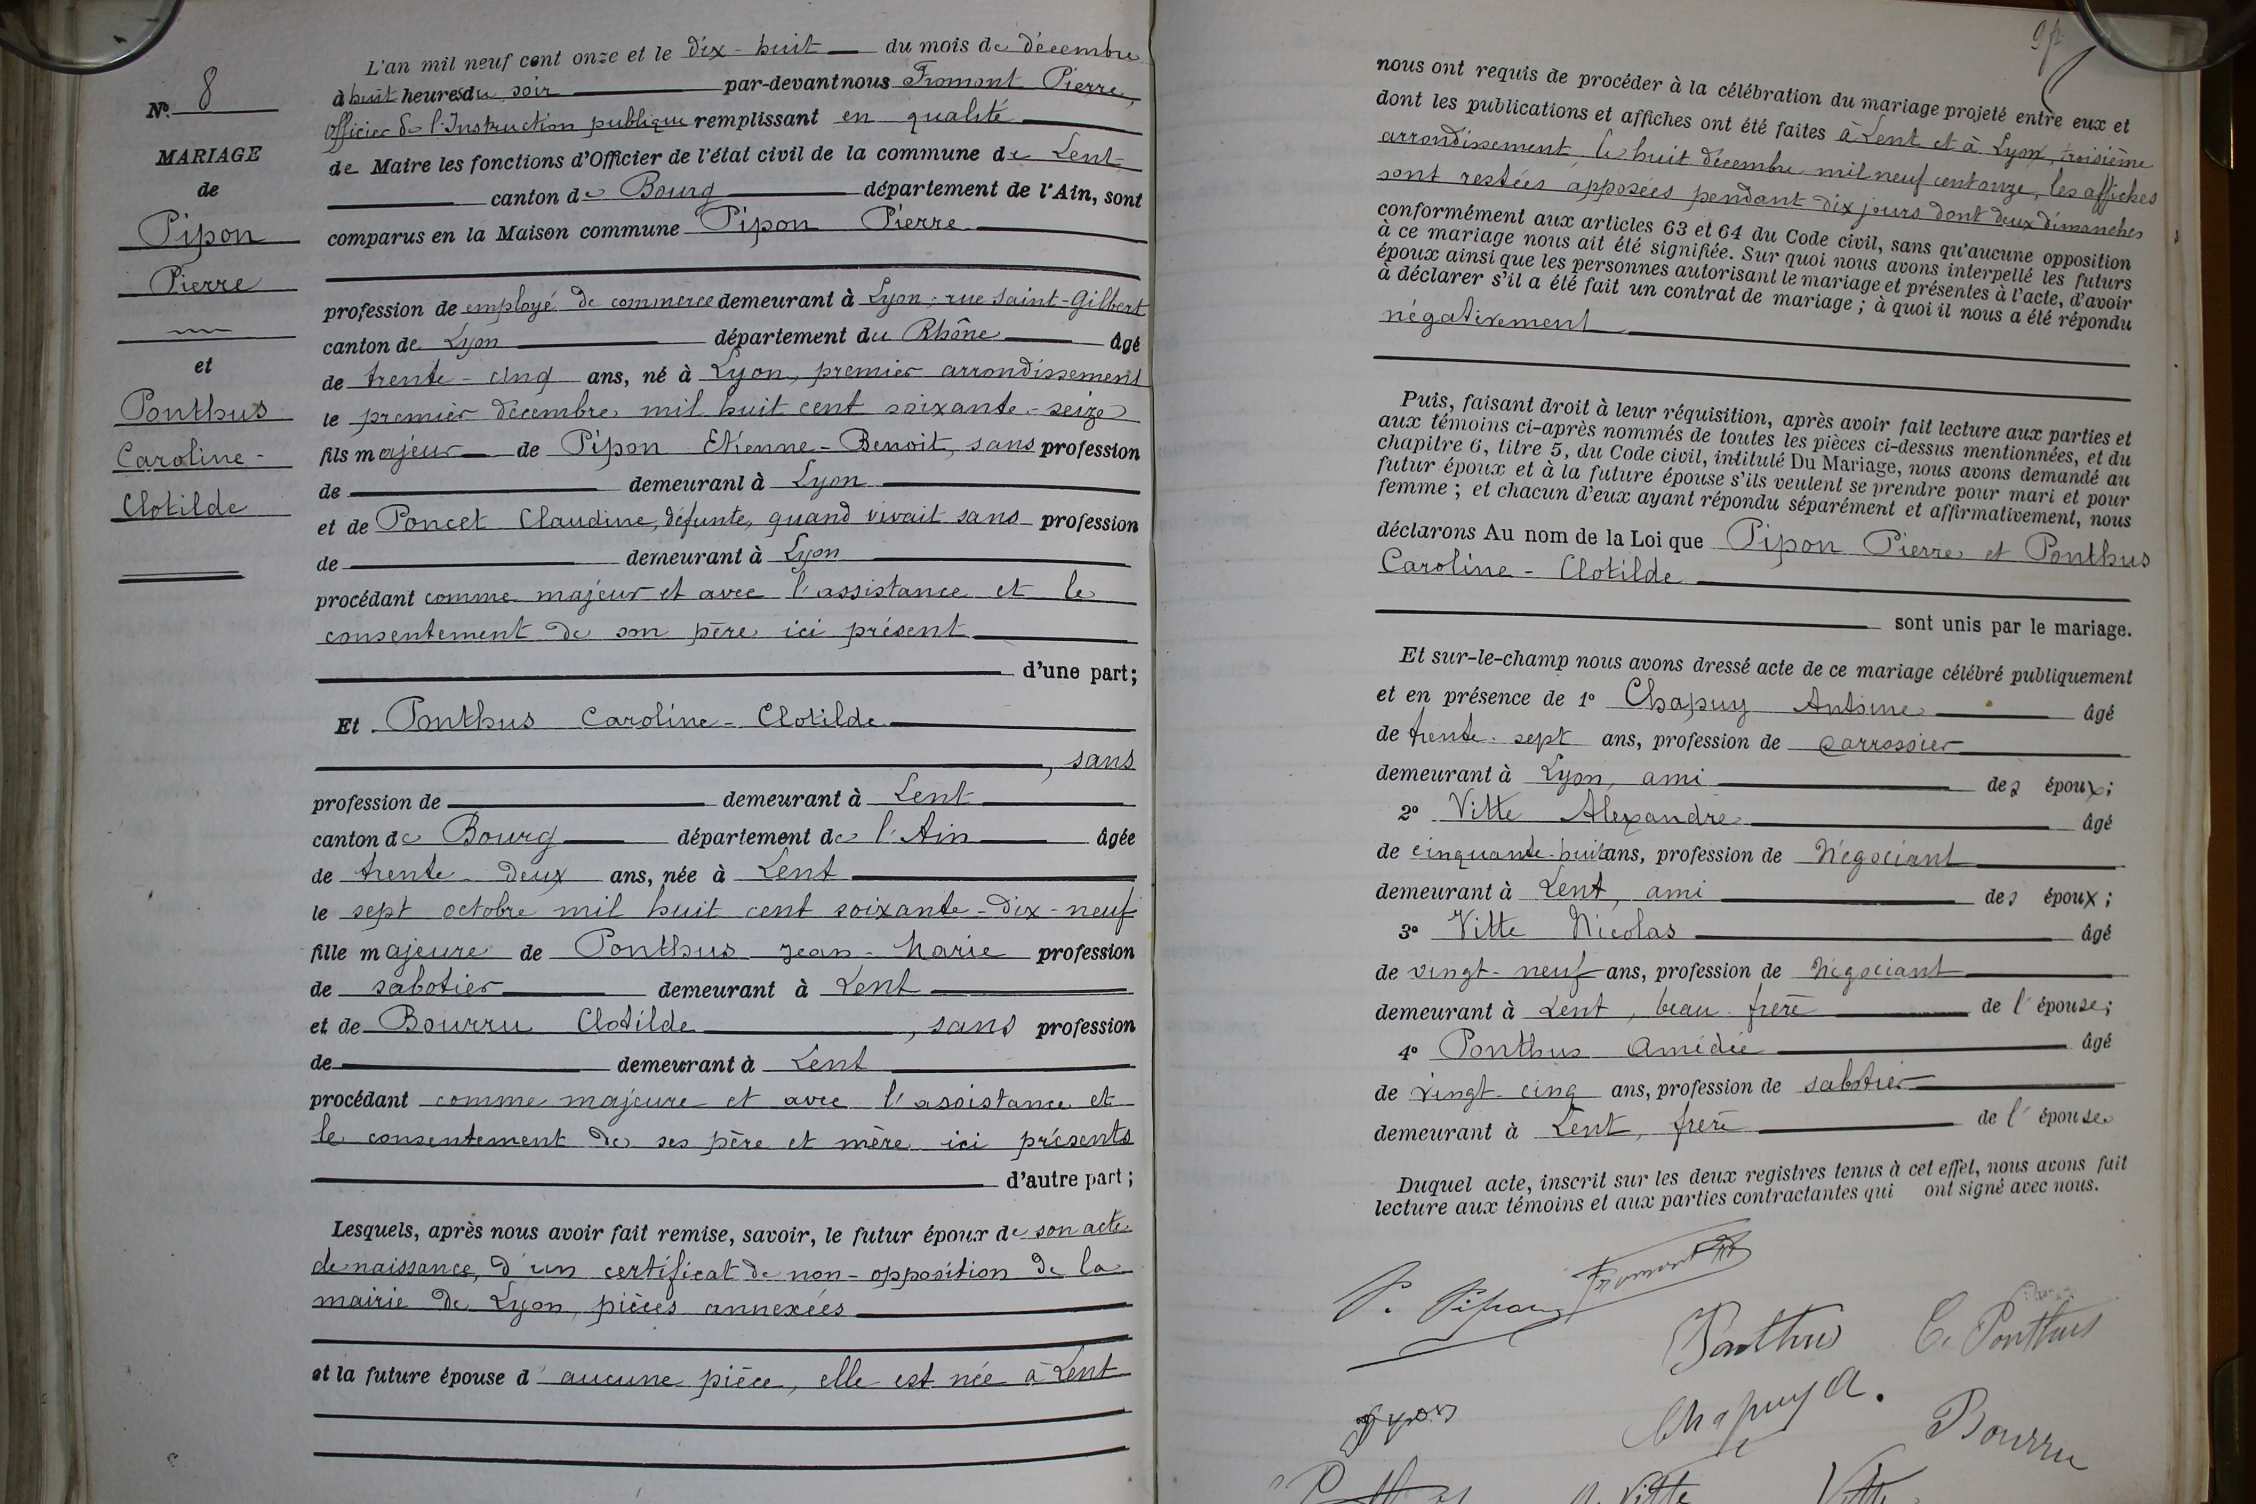 N° 8
MARIAGE
de
Pipon
Pierre
et
Ponthus
Caroline-
Clotilde
L'an mil neuf cent onze et le dix-huit du mois de décembre
à huit heures du soir par-devant nous Fromont Pierre,
Officier de l'Instruction publique remplissant en qualité
de Maire les fonctions d'Officier de l'état civil de la commune de Lent
canton de Bourg département de l'Ain, sont
comparus en la Maison commune Pipon Pierre
profession de employé de commerce demeurant à Lyon, rue Saint-Gilbert
canton de Lyon département du Rhône âgé
de trente-cinq ans, né à Lyon, premier arrondissement
le premier décembre mil huit cent soixante-seize
fils majeur de Pipon Etienne-Benoit, sans profession
de demeurant à Lyon
et de Poncet Claudine, défunte, quand vivait sans profession
de demeurant à Lyon
procédant comme majeur et avec l'assistance et le
consentement de son père ici présent
d'une part;
Et Ponthus Caroline-Clotilde
, sans
profession de demeurant à Lent
canton de Bourg département de l'Ain âgée
de trente-deux ans, née à Lent
le sept octobre mil huit cent soixante-dix-neuf
fille majeure de Ponthus Jean-Marie profession
de sabotier demeurant à Lent
et de Bourru Clotilde, sans profession
de demeurant à Lent
procédant comme majeure et avec l'assistance et
le consentement de ses père et mère ici présents
d'autre part;
Lesquels, après nous avoir fait remise, savoir, le futur époux de son acte
de naissance, d'un certificat de non-opposition de la
mairie de Lyon, pièces annexées
et la future épouse d'aucune pièce, elle est née à Lent
nous ont requis de procéder à la célébration du mariage projeté entre eux et
dont les publications et affiches ont été faites à Lent et à Lyon, troisième
arrondissement, le huit décembre mil neuf cent onze, les affiches
sont restées apposées pendant dix jours dont deux dimanches
conformément aux articles 63 et 64 du Code civil, sans qu'aucune opposition
à ce mariage nous ait été signifiée. Sur quoi nous avons interpellé les futurs
époux ainsi que les personnes autorisant le mariage et présentes à l'acte, d'avoir
à déclarer s'il a été fait un contrat de mariage; à quoi il nous a été répondu
négativement
Puis, faisant droit à leur réquisition, après avoir fait lecture aux parties et
aux témoins ci-après nommés de toutes les pièces ci-dessus mentionnées, et du
chapitre 6, titre 5, du Code civil, intitulé Du Mariage, nous avons demandé au
futur époux et à la future épouse s'ils veulent se prendre pour mari et pour
femme; et chacun d'eux ayant répondu séparément et affirmativement, nous
déclarons Au nom de la Loi que Pipon Pierre et Ponthus
Caroline-Clotilde
sont unis par le mariage.
Et sur-le-champ nous avons dressé acte de ce mariage célébré publiquement
et en présence de 1° Chapuy Antoine âgé
de trente-sept ans, profession de carrossier
demeurant à Lyon, ami des époux;
2° Vitte Alexandre âgé
de cinquante-huit ans, profession de Négociant
demeurant à Lent, ami des époux;
3° Vitte Nicolas âgé
de vingt-neuf ans, profession de Négociant
demeurant à Lent, beau-frère de l'épouse;
4° Ponthus Amédée âgé
de vingt-cinq ans, profession de sabotier
demeurant à Lent, frère de l'épouse
Duquel acte, inscrit sur les deux registres tenus à cet effet, nous avons fait
lecture aux témoins et aux parties contractantes qui ont signé avec nous.
P. Pipon Fromont
Ponthus C. Ponthus
Chapuy A.
Bourru
Vitte Vitte